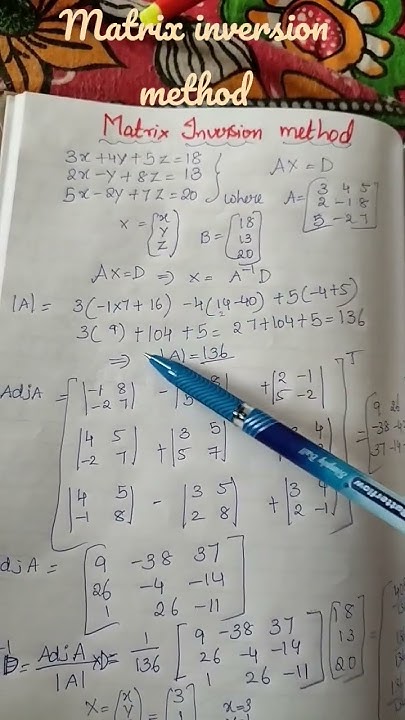 Matrix inversion
method
Matrix Inversion method
3x+4y+5z=18
2x-y+8z=13
5x-2y+7z=20
AX=D
where A=[3 4 5
2 -1 8
5 -2 7]
X=(x
y
z)
B=[18
13
20]
AX=D ⇒ X= A⁻¹D
|A|= 3(-1x7+16) -4(14-40)+5(-4+5)
3(9)+104+5=27+104+5=136
⇒ |A|=136
AdjA= [|-1 8
-2 7| - +|2 -1
5 -2|
|4 5
-2 7| +|3 5
5 7|
|4 5
-1 8| - |3 5
2 8| +|3 4
2 -1|]T
=[9 26
-38 -4
37 -14
dj A = [9 -38 37
26 -4 -14
1 26 -11]
= AdjA/|A| xD= 1/136 [9 -38 37
26 -4 -14
1 26 -11] [18
13
20] =
X=(x
y =(3
1
x=3